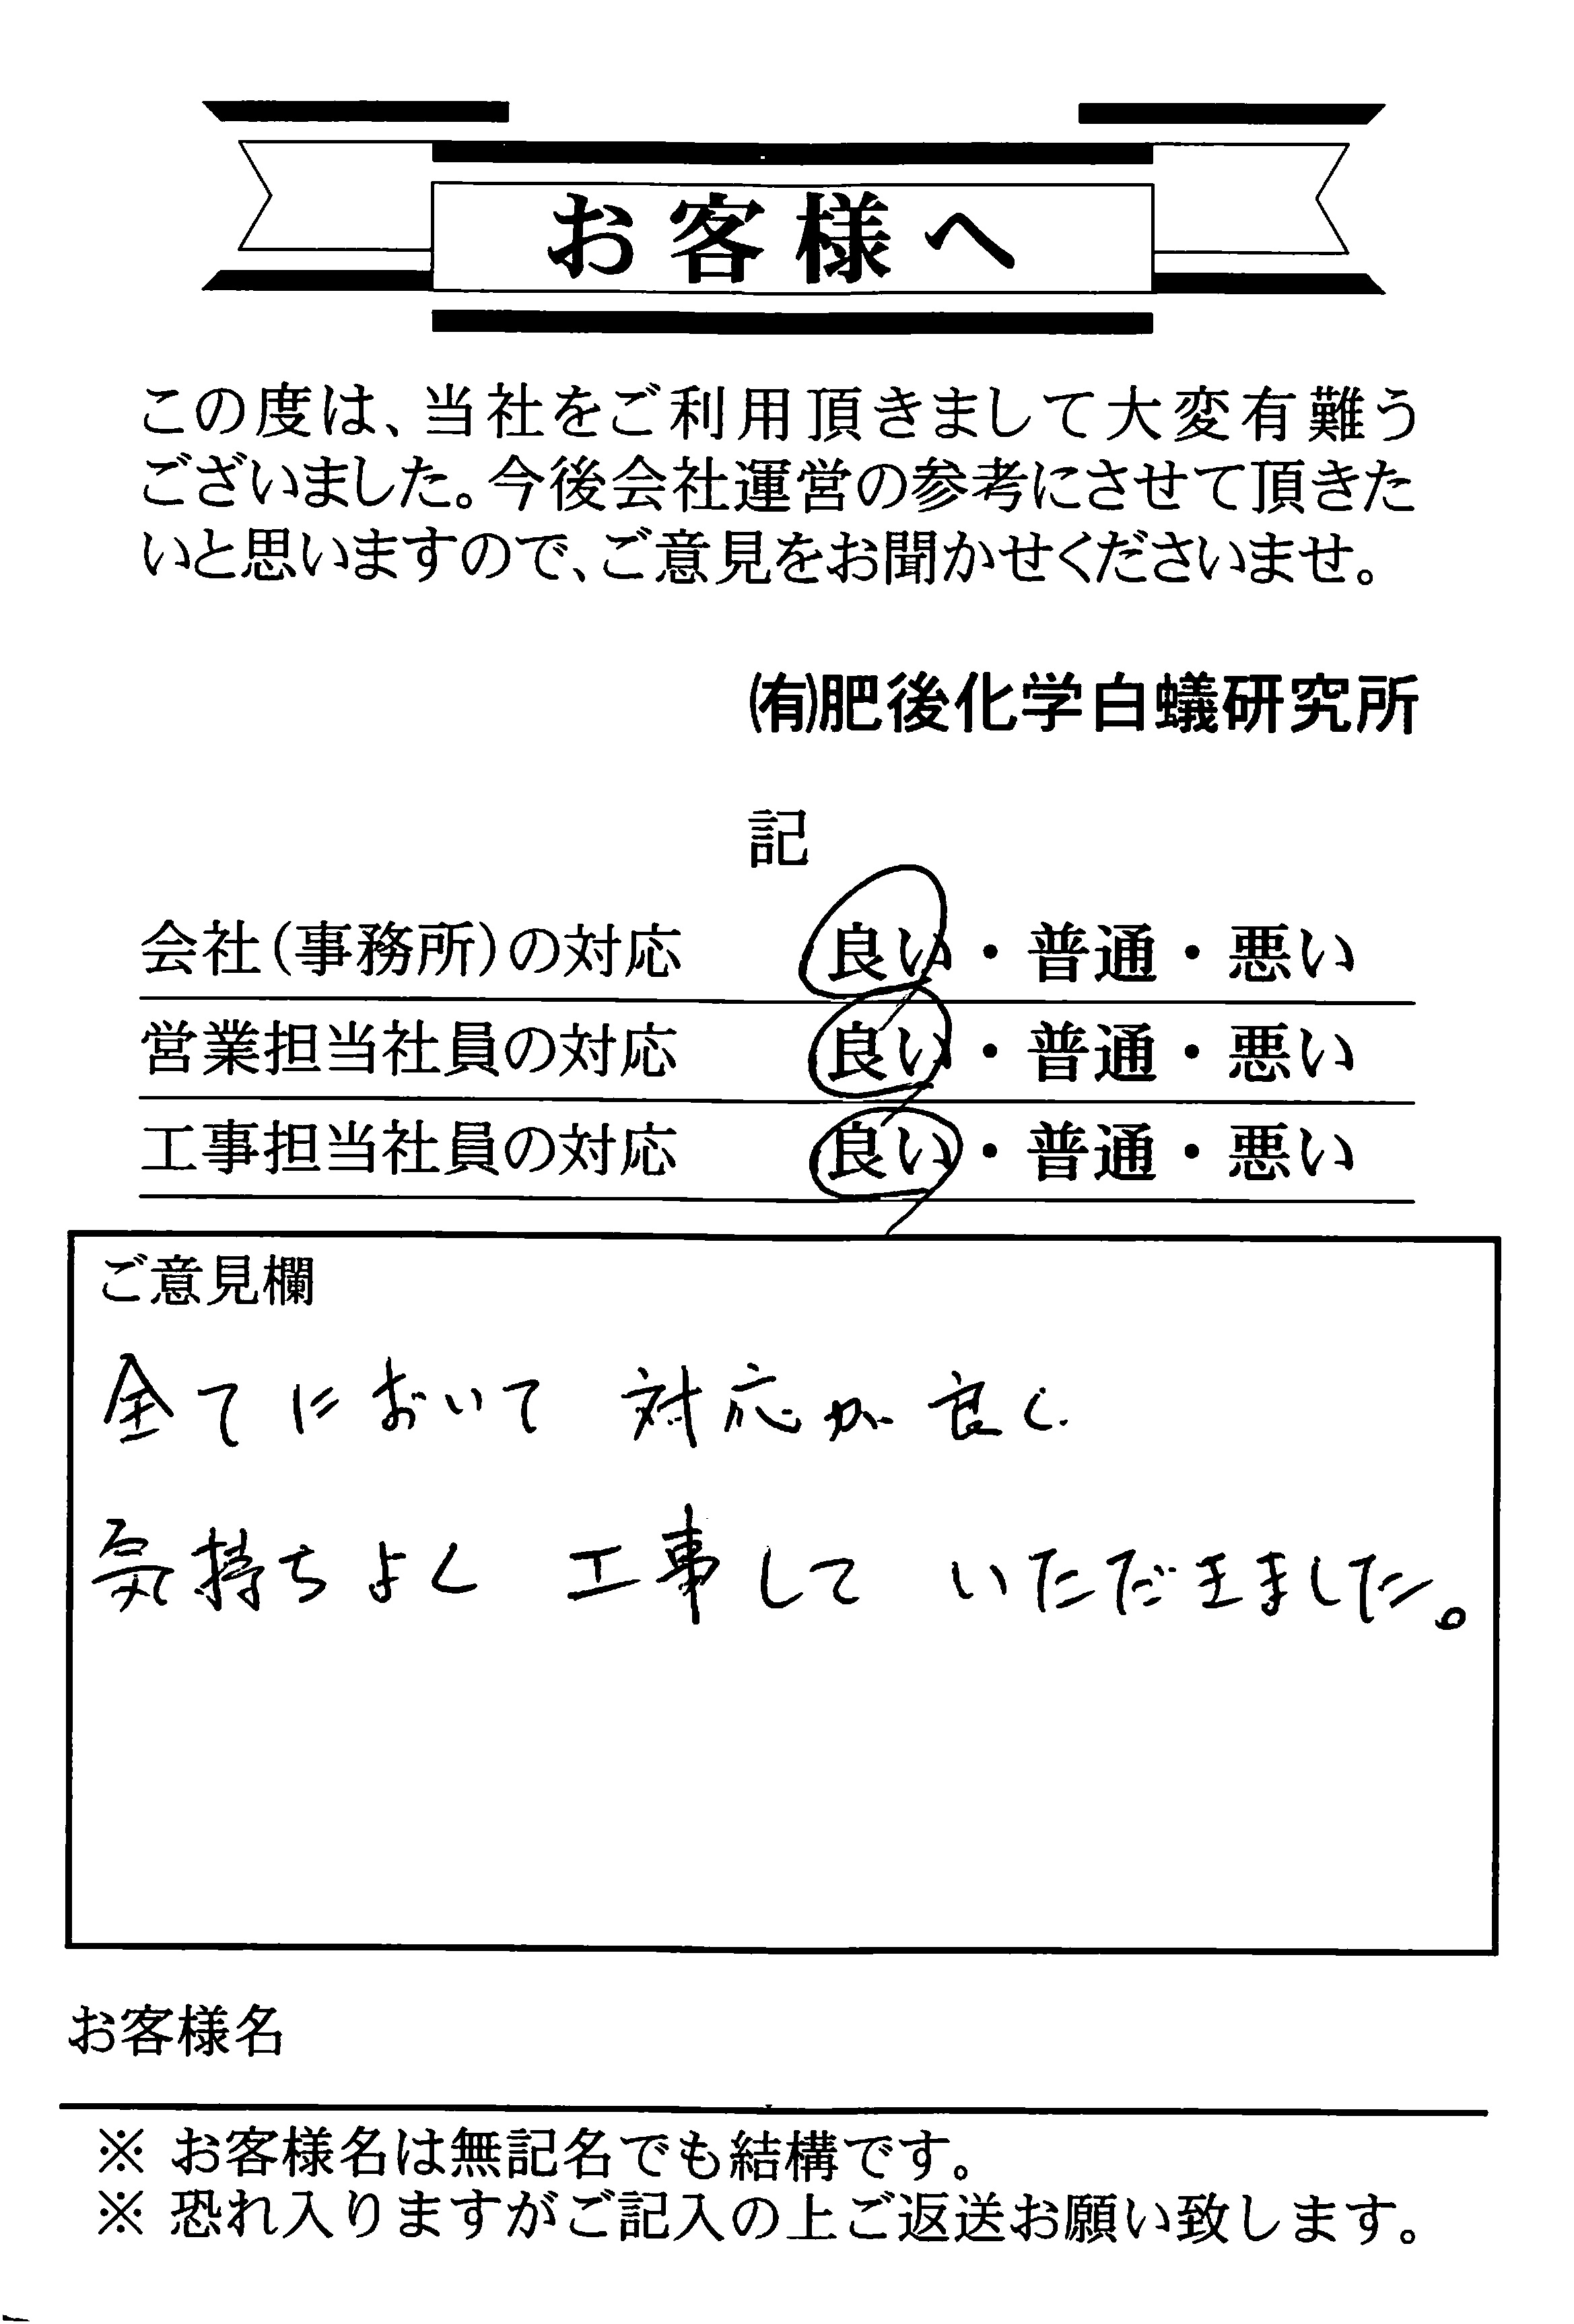 お客様へ
この度は、当社をご利用頂きまして大変有難う
ございました。今後会社運営の参考にさせて頂きた
いと思いますので、ご意見をお聞かせくださいませ。
㈲肥後化学白蟻研究所
記
会社(事務所)の対応 良い・普通・悪い
営業担当社員の対応 良い・普通・悪い
工事担当社員の対応 良い・普通・悪い
ご意見欄
全てにおいて 対応が良く
気持ちよく 工事して いただきました。
お客様名
※ お客様名は無記名でも結構です。
※ 恐れ入りますがご記入の上ご返送お願い致します。